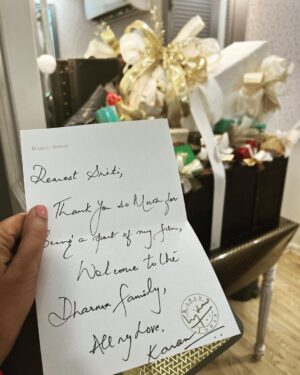 KARAN JOHAR
Dearest Sriti,
Thank You so Much for
being a part of my film,
Welcome to the
Dharma family,
All my Love,
Karan